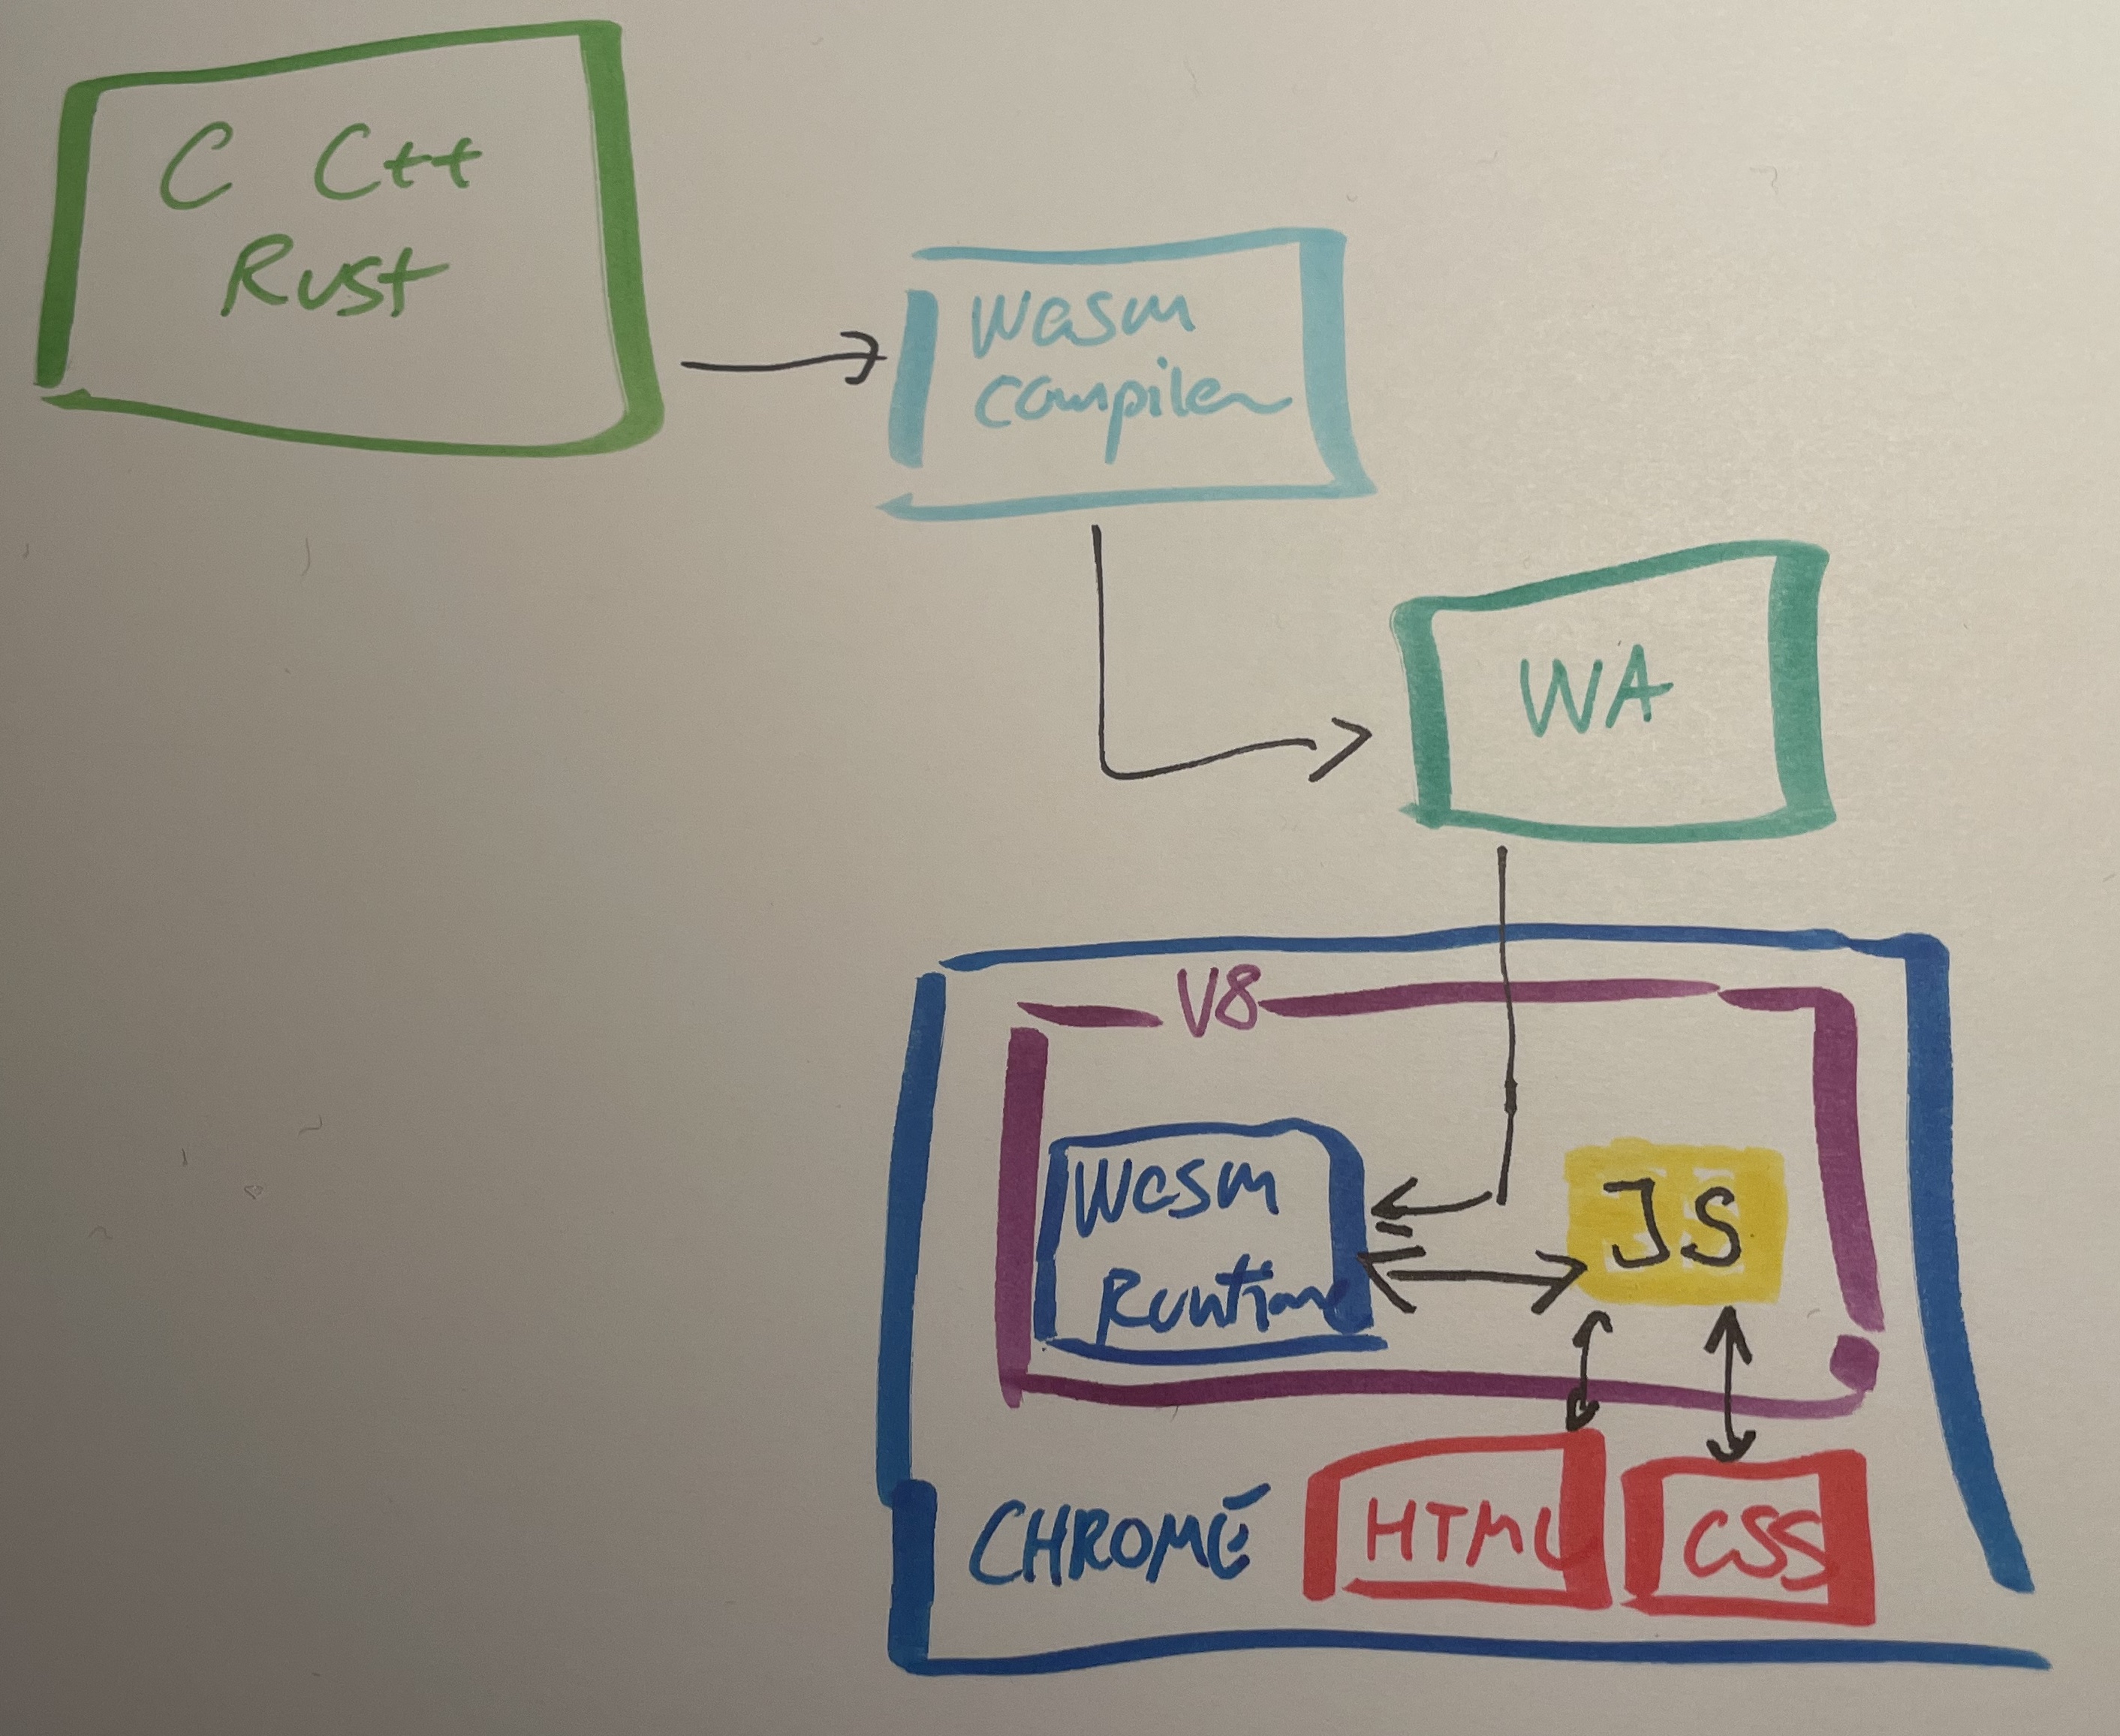 C C++
Rust
Wasm
Compiler
WA
V8
Wasm
Runtime
JS
CHROME
HTML
CSS